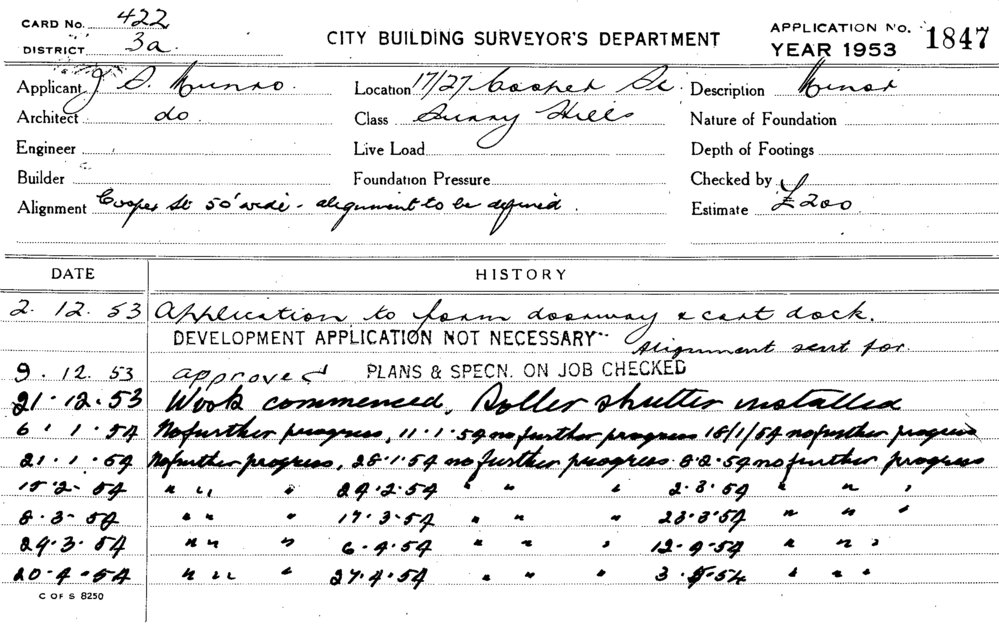 CARD No. 422
DISTRICT 3a.
CITY BUILDING SURVEYOR'S DEPARTMENT
APPLICATION No. 1847
YEAR 1953
Applicant J S. Munro. Location 17/27 Cooper St. Description Minor
Architect do Class Surry Hills Nature of Foundation
Engineer Live Load Depth of Footings
Builder Foundation Pressure Checked by
Alignment Cooper St 50' wide - alignment to be defined. Estimate £200
DATE HISTORY
2. 12. 53 Application to form doorway & cart dock.
DEVELOPMENT APPLICATION NOT NECESSARY Alignment sent for.
9. 12. 53 approved PLANS & SPECN. ON JOB CHECKED
21. 12. 53 Work commenced, Roller shutter installed
6. 1. 54 No further progress, 11.1.54 no further progress 18/1/54 no further progress
21. 1. 54 No further progress, 28.1.54 no further progress 8.2.54 no further progress
15. 2. 54 " " " 24.2.54 " " " 2.3.54 " " "
8. 3. 54 " " " 17.3.54 " " " 23.3.54 " " "
29. 3. 54 " " " 6.4.54 " " " 12.4.54 " " "
20. 4. 54 " " " 27.4.54 " " " 3.5.54 " " "
C OF S 8250